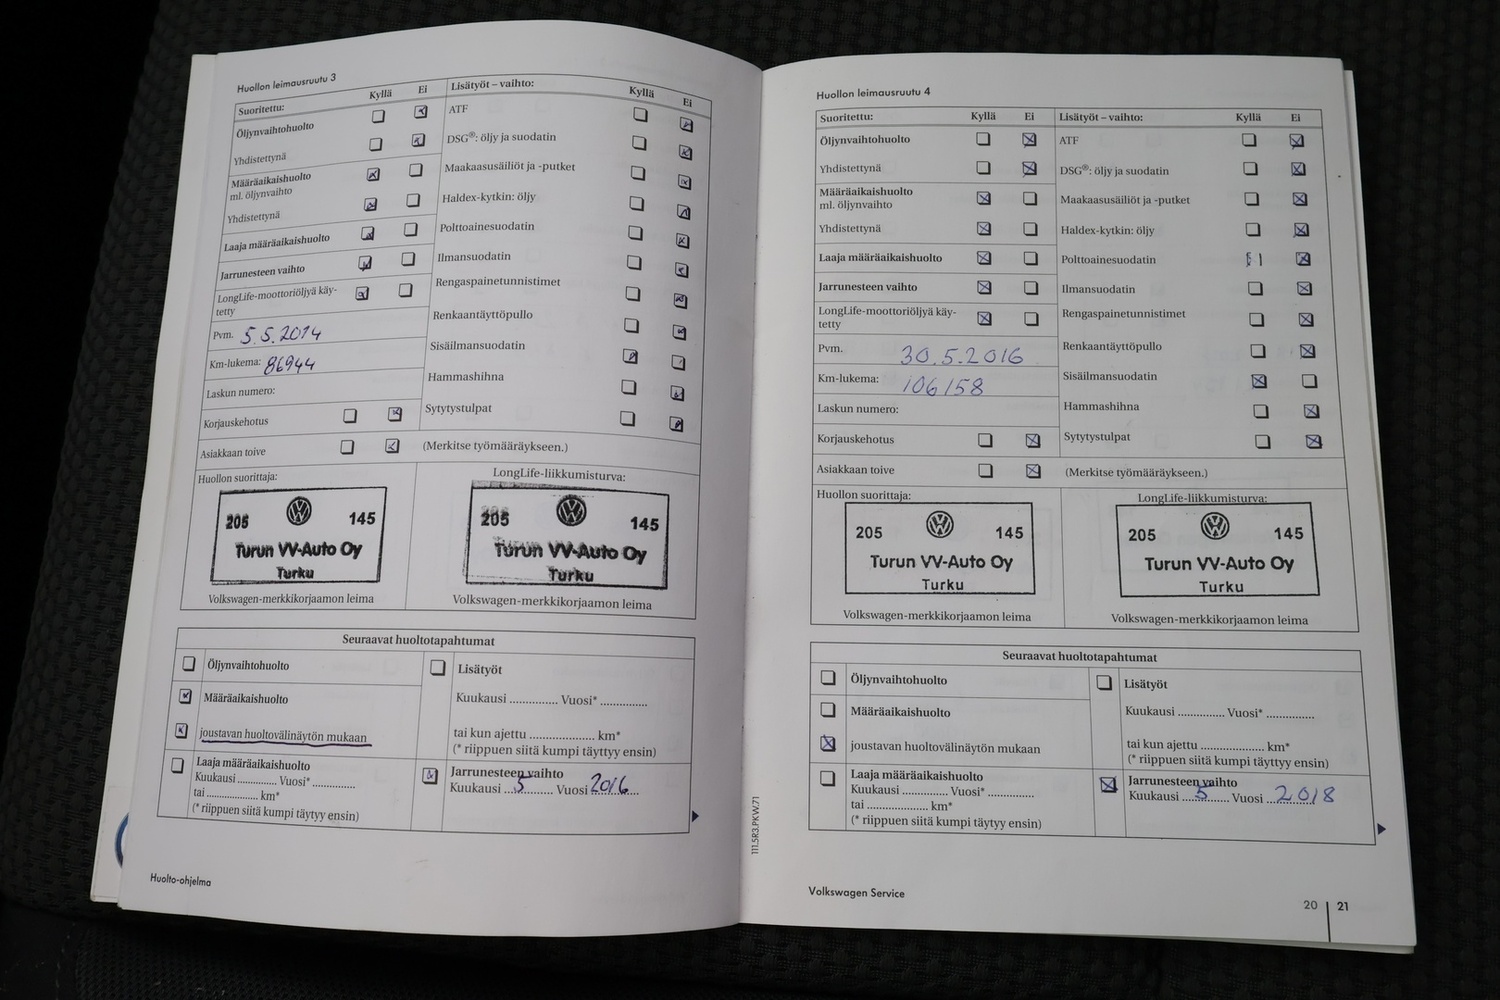 Huollon leimausruutu 3
Suoritettu: Kyllä Ei
Öljynvaihtohuolto
Yhdistettynä
Määräaikaishuolto
ml. öljynvaihto
Yhdistettynä
Laaja määräaikaishuolto
Jarrunesteen vaihto
LongLife-moottoriöljyä käy-
tetty
Pvm. 5.5.2014
Km-lukema: 86944
Laskun numero:
Korjauskehotus
Asiakkaan toive
Lisätyöt – vaihto: Kyllä Ei
ATF
DSG®: öljy ja suodatin
Maakaasusäiliöt ja -putket
Haldex-kytkin: öljy
Polttoainesuodatin
Ilmansuodatin
Rengaspainetunnistimet
Renkaantäyttöpullo
Sisäilmansuodatin
Hammashihna
Sytytystulpat
(Merkitse työmääräykseen.)
Huollon suorittaja:
205 145
Turun VV-Auto Oy
Turku
Volkswagen-merkkikorjaamon leima
LongLife-liikkumisturva:
205 145
Turun VV-Auto Oy
Turku
Volkswagen-merkkikorjaamon leima
Seuraavat huoltotapahtumat
Öljynvaihtohuolto
Määräaikaishuolto
joustavan huoltovälinäytön mukaan
Laaja määräaikaishuolto
Kuukausi ............. Vuosi* ...............
tai .................... km*
(* riippuen siitä kumpi täytyy ensin)
Lisätyöt
Kuukausi .............. Vuosi* ..............
tai kun ajettu .................... km*
(* riippuen siitä kumpi täyttyy ensin)
Jarrunesteen vaihto
Kuukausi ...5......... Vuosi 2016....
Huolto-ohjelma
Huollon leimausruutu 4
Suoritettu: Kyllä Ei
Öljynvaihtohuolto
Yhdistettynä
Määräaikaishuolto
ml. öljynvaihto
Yhdistettynä
Laaja määräaikaishuolto
Jarrunesteen vaihto
LongLife-moottoriöljyä käy-
tetty
Pvm. 30.5.2016
Km-lukema: 106158
Laskun numero:
Korjauskehotus
Asiakkaan toive
Lisätyöt – vaihto: Kyllä Ei
ATF
DSG®: öljy ja suodatin
Maakaasusäiliöt ja -putket
Haldex-kytkin: öljy
Polttoainesuodatin
Ilmansuodatin
Rengaspainetunnistimet
Renkaantäyttöpullo
Sisäilmansuodatin
Hammashihna
Sytytystulpat
(Merkitse työmääräykseen.)
Huollon suorittaja:
205 145
Turun VV-Auto Oy
Turku
Volkswagen-merkkikorjaamon leima
LongLife-liikkumisturva:
205 145
Turun VV-Auto Oy
Turku
Volkswagen-merkkikorjaamon leima
Seuraavat huoltotapahtumat
Öljynvaihtohuolto
Määräaikaishuolto
joustavan huoltovälinäytön mukaan
Laaja määräaikaishuolto
Kuukausi .............. Vuosi* ..............
tai .................... km*
(* riippuen siitä kumpi täytyy ensin)
Lisätyöt
Kuukausi .............. Vuosi* ..............
tai kun ajettu .................... km*
(* riippuen siitä kumpi täyttyy ensin)
Jarrunesteen vaihto
Kuukausi ...5......... Vuosi ..2018
111.5R3.PKW.71
Volkswagen Service
20 21